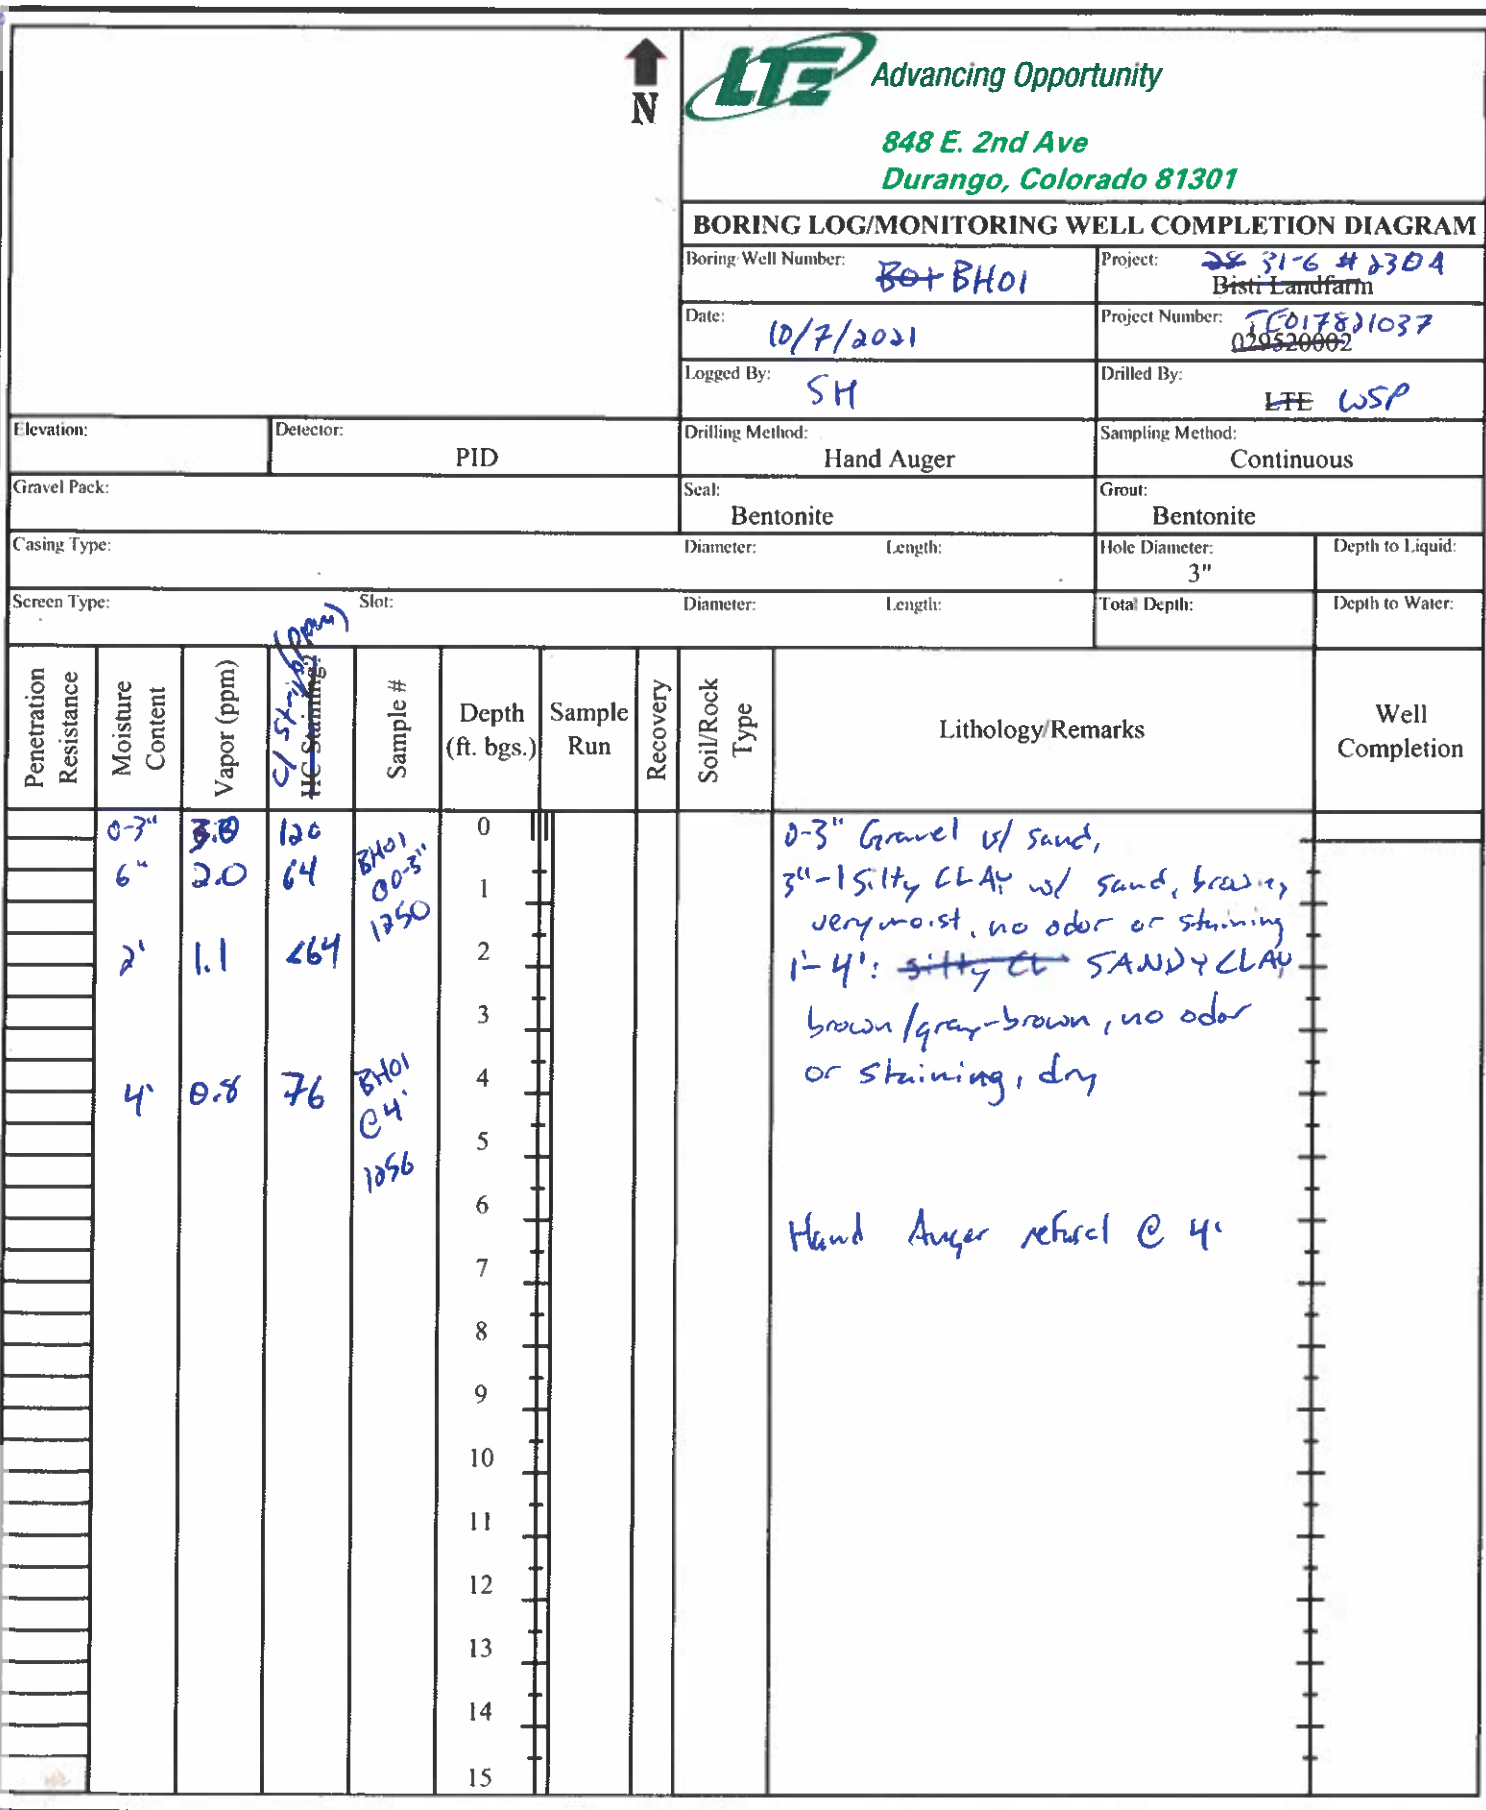 N
LTE Advancing Opportunity
848 E. 2nd Ave
Durango, Colorado 81301
BORING LOG/MONITORING WELL COMPLETION DIAGRAM
Boring/Well Number: BH01
Project: 31-6 # 230A
Bisti Landfarm
Date: 10/7/2021
Project Number: TE017821037
029520002
Logged By: SH
Drilled By: LTE WSP
Elevation:
Detector: PID
Drilling Method: Hand Auger
Sampling Method: Continuous
Gravel Pack:
Seal: Bentonite
Grout: Bentonite
Casing Type:
Diameter:
Length:
Hole Diameter: 3"
Depth to Liquid:
Screen Type:
Slot:
Diameter:
Length:
Total Depth:
Depth to Water:
Penetration Resistance
Moisture Content
Vapor (ppm)
HC Staining?
Cl Strip (ppm)
Sample #
Depth (ft. bgs.)
Sample Run
Recovery
Soil/Rock Type
Lithology/Remarks
Well Completion
0-3" 120 BH01 @0-3" 1250
6" 2.0 64
2' 1.1 <64
4' 0.8 76 BH01 @ 4' 1256
0
1
2
3
4
5
6
7
8
9
10
11
12
13
14
15
0-3" Gravel w/ sand,
3"-1 Silty CLAY w/ sand, brown,
very moist, no odor or staining
1'-4': silty CL SANDY CLAY
brown/gray-brown, no odor
or staining, dry
Hand Auger refusal @ 4'